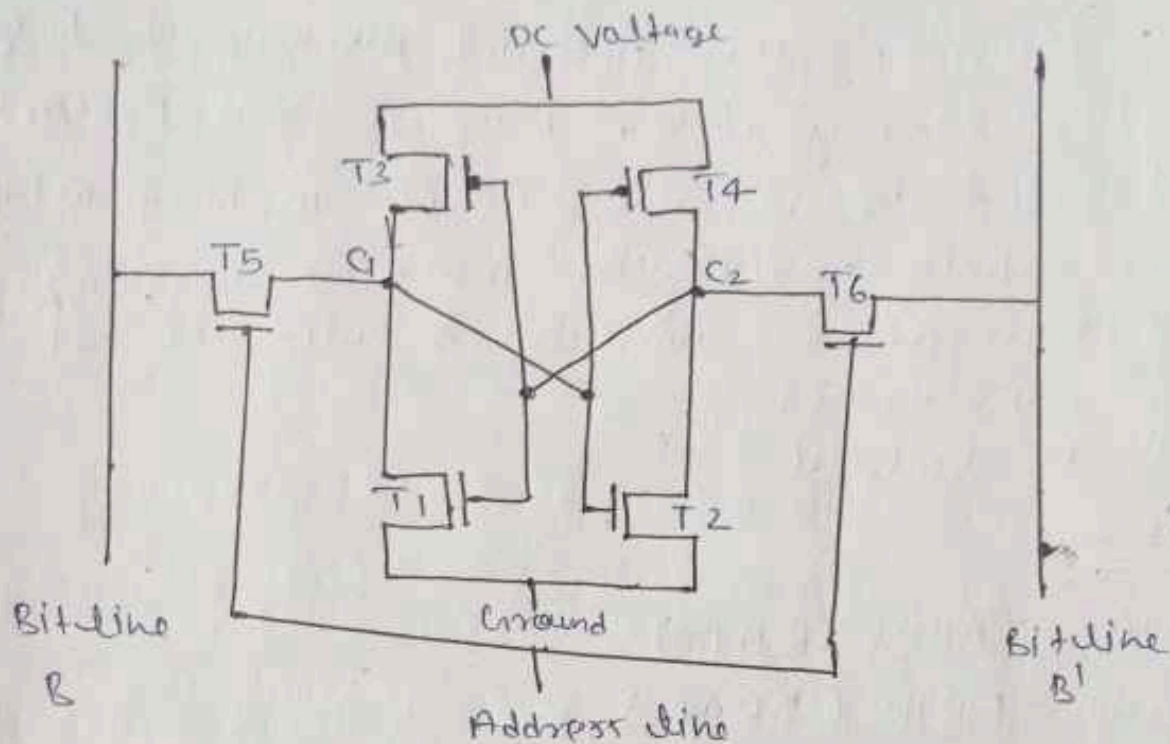 DC Voltage
T3
T4
T5
C1
C2
T6
T1
T2
Ground
Bit line
B
Bit line
B'
Address line